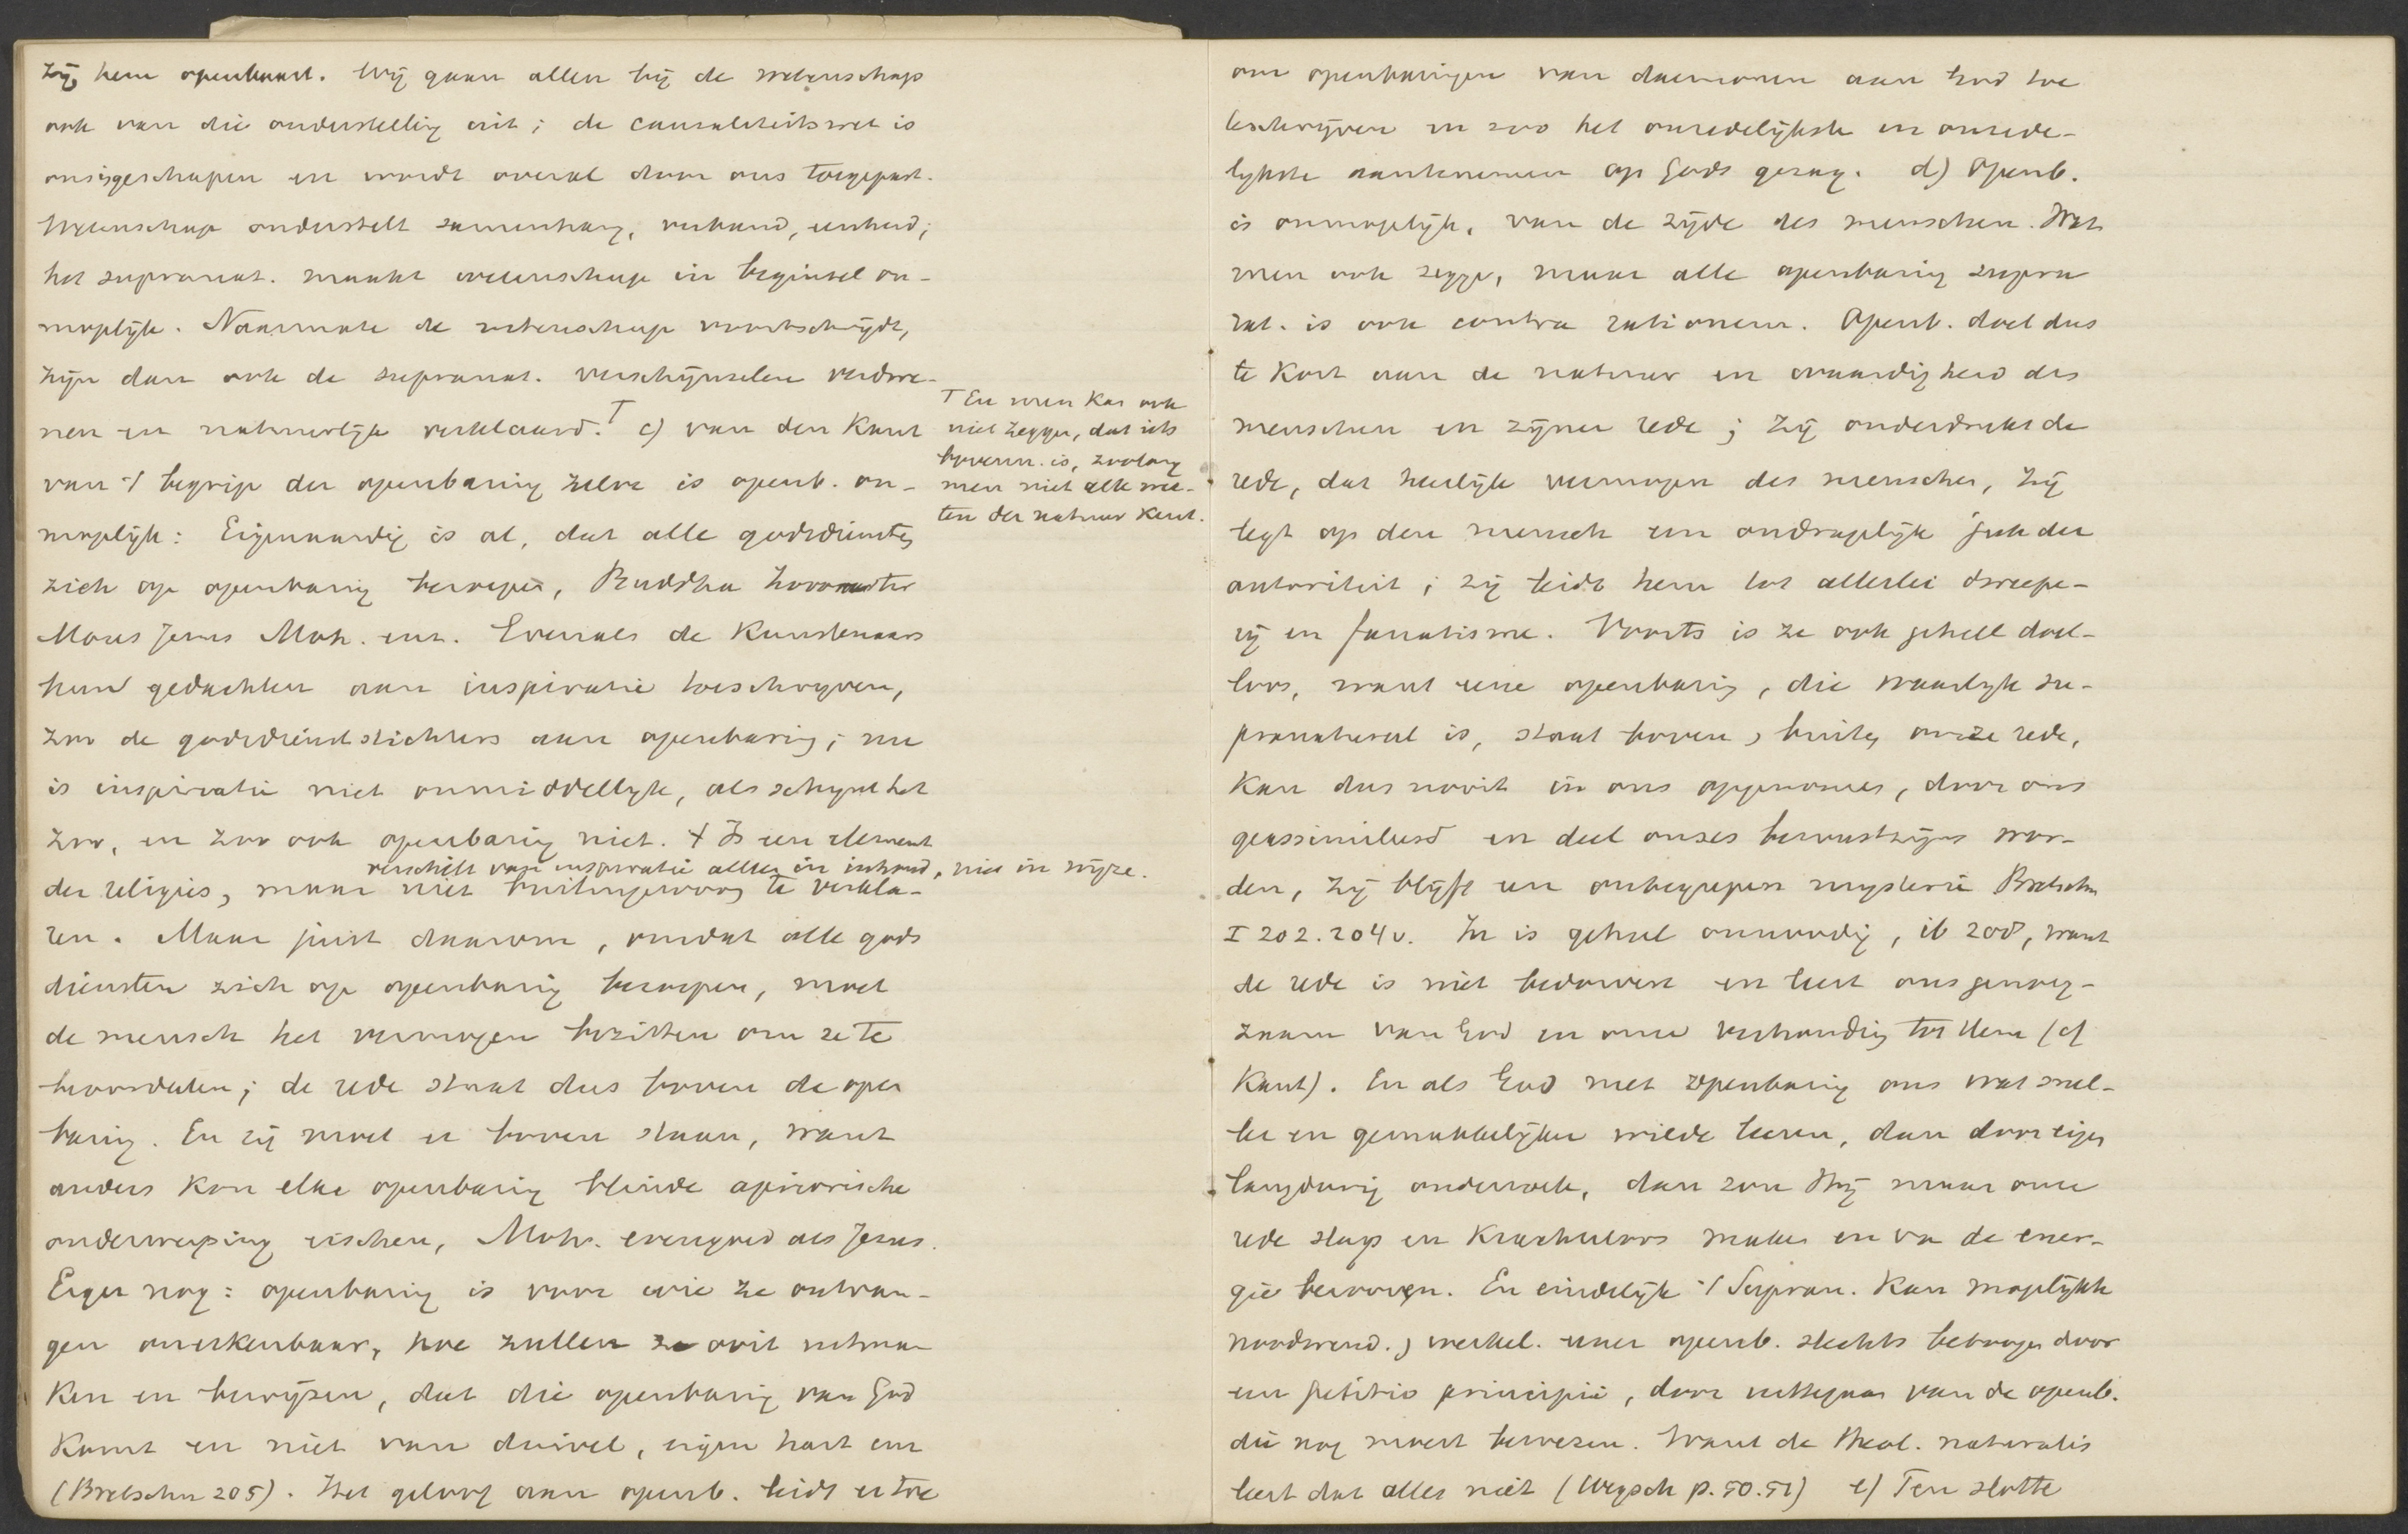 zij hem openbaart. Wij gaan allen bij de wetenschap
ook van die onderstelling uit; de causaliteitswet is
ons ingeschapen en wordt overal door ons toegepast.
Wetenschap onderstelt samenhang, verband, eenheid;
het supranat. maakt wetenschap in beginsel on-
mogelijk. Naarmate de wetenschap voortschrijdt,
zijn dan ook de supranat. verschijnselen verdwe-
nen en natuurlijk verklaard.⊤ c) van den kant
⊤ En men kan ook
niet zeggen, dat iets
bovenn. is, zoolang
men niet alle wet-
ten der natuur kent.
van 't begrip der openbaring zelve is openb. on-
mogelijk: Eigenaardig is al, dat alle godsdiensten
zich op openbaring beroepen, Buddha Zoroaster
Mozes Jezus Moh. enz. Evenals de kunstenaars
hun gedachten aan inspiratie toeschrijven,
zoo de godsdienststichters aan openbaring; nu
is inspiratie niet onmiddellijk, al schijnt het
zoo, en zoo ook openbaring niet. + Is een element
verschilt van inspiratie alleen in inhoud, niet in wijze.
der religies, maar niet buitengewoon te verkla-
ren. Maar juist daarom, omdat alle gods
diensten zich op openbaring beroepen, moet
de mensch het vermogen bezitten om ze te
beoordeelen; de rede staat dus boven de open
baring. En zij moet er boven staan, want
anders kon elke openbaring blinde apriorische
onderwerping eischen, Moh. evengoed als Jezus.
Erger nog: openbaring is voor wie ze ontvan-
gen onerkenbaar, hoe zullen ze ooit uitma-
ken en bewijzen, dat die openbaring van God
komt en niet van duivel, eigen hart enz
(Bretschn 205). Het geloof aan openb. leidt er toe
om openbaringen van daemonen aan God toe
te schrijven en zoo het onredelijkste en onzede-
lijkste aan te nemen op Gods gezag. d) Openb.
is onmogelijk, van de zijde des menschen. Wat
men ook zegge, maar alle openbaring supra
rat. is ook contra rationem. Openb. doet dus
te kort aan de natuur en waardigheid des
menschen en zijner rede; zij onderdrukt de
rede, dat heerlijk vermogen des menschen, zij
legt op den mensch een ondragelijk juk der
autoriteit; zij leidt hem tot allerlei dweepe-
rij en fanatisme. Voorts is ze ook geheel doel-
loos, want eene openbaring, die waarlijk su-
pranatureel is, staat boven, buiten onze rede,
kan dus nooit in ons opgenomen, door ons
geassimileerd en deel onzes bewustzijns wor-
den, zij blijft een onbegrepen mysterie Bretschn
I 202. 204v. Ze is geheel onnoodig, ib 208, want
de rede is niet bedorven en leert ons genoeg-
zaam van God en onze verhouding tot Hem (cf
Kant). En als God met openbaring ons wat snel-
ler en gemakkelijker wilde leeren, dan door eigen
langdurig onderzoek, dan zou Hij maar onze
rede slap en krachteloos maken en van de ener-
gie berooven. En eindelijk 't Supran. kan mogelijkh
noodwend., werkel. eener openb. slechts betoogen door
een petitio principii, door uittegaan van de openb.
die nog moest bewezen. Want de theol. naturalis
leert dat alles niet (Wegsch p. 50. 51) e) Ten slotte